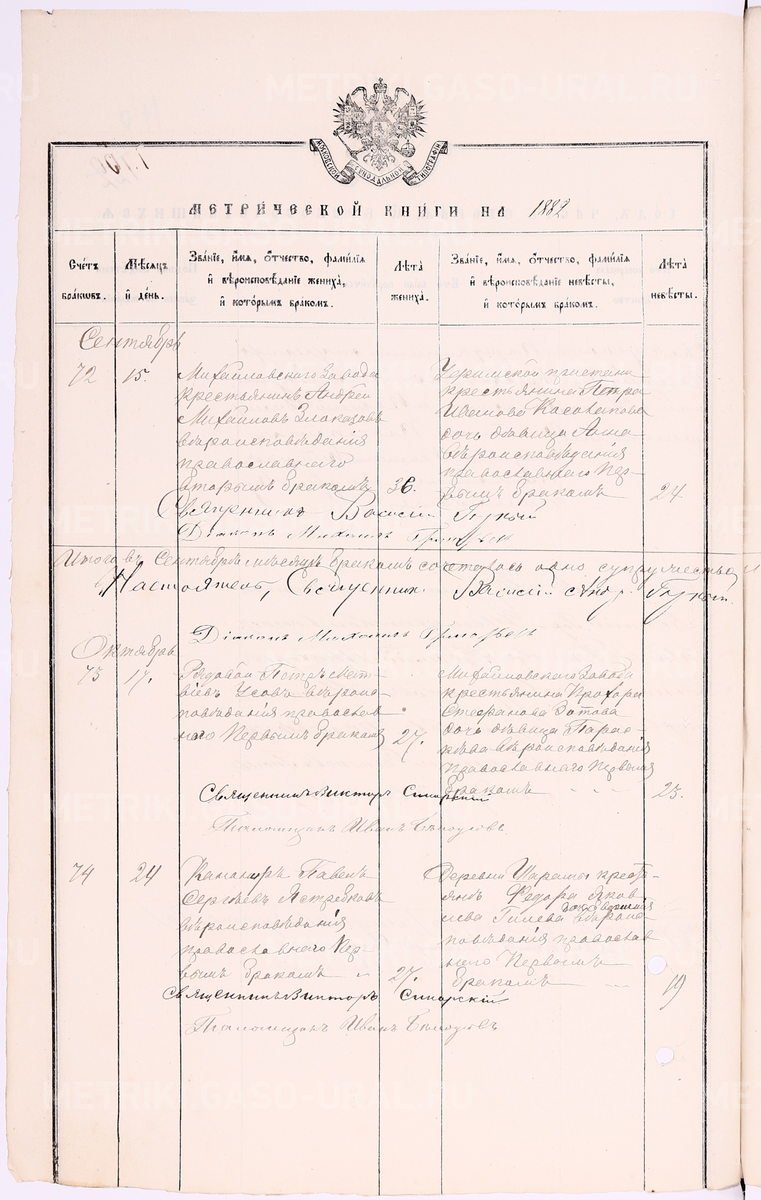 METRIKI.GASO-URAL.RU
МОСКОВСКОЙ СѴНОДАЛЬНОЙ ТИПОГРАФІИ
МЕТРИ́ЧЕСКОЙ КНИ́ГИ НА 1882
Сче́тъ бра́ковъ.
Мѣ́сяцъ и҆ де́нь.
Зва́ніе, и҆́мя, ѻ҆́тчество, фами́лія и҆ вѣроисповѣ́даніе жениха̀, и҆ кото́рымъ бра́комъ.
Лѣ́та жениха̀.
Зва́ніе, и҆́мя, ѻ҆́тчество, фами́лія и҆ вѣроисповѣ́даніе невѣ́сты, и҆ кото́рымъ бра́комъ.
Лѣ́та невѣ́сты.
Сентябрь
72
15.
Михайловскаго завода
крестьянинъ Андрей
Михайловъ
вѣроисповѣданія
православнаго
вторымъ бракомъ
36.
пристани
крестьянина Петра
Иванова
дочь дѣвица Анна
вѣроисповѣданія
православнаго Пер-
вымъ бракомъ
24
Священникъ Василій
Діаконъ Михаилъ
Итого въ Сентябрѣ мѣсяцѣ бракомъ сочеталось одно супружество
Настоятель, Священникъ Василій Анд.
Діаконъ Михаилъ
Октябрь
73
17.
Рядовой Петръ Мат-
вѣевъ Усовъ вѣроис-
повѣданія православ-
наго Первымъ бракомъ
27.
Михайловскаго завода
крестьянина Прохора
Стефанова Зотова
дочь дѣвица Парас-
кева вѣроисповѣданія
православнаго Первымъ
бракомъ
23.
Священникъ Викторъ Сиварскій
Псаломщикъ Иванъ
74
24
Канониръ Павелъ
Сергѣевъ Ястребковъ
вѣроисповѣданія
православнаго Пер-
вымъ бракомъ
27.
Деревни крестъ-
янъ Федора Яков-
лева Гилева вѣроис-
повѣданія православ-
наго Первымъ
бракомъ
19
Священникъ Викторъ Сиварскій
Псаломщикъ Иванъ
METRIKI.GASO-URAL.RU